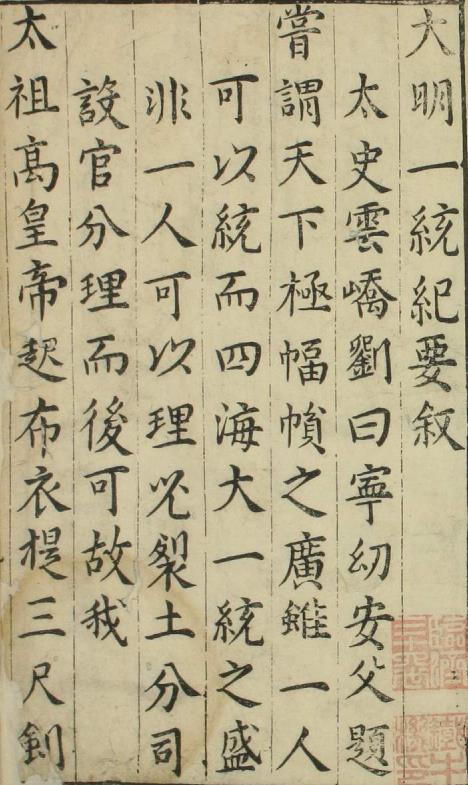 大明一統紀要叙
太史雲嶠劉曰寧幼安父題
嘗謂天下極幅幀之廣雖一人
可以統而四海大一統之盛
非一人可以理必裂土分司
設官分理而後可故我
太祖高皇帝起布衣提三尺劍